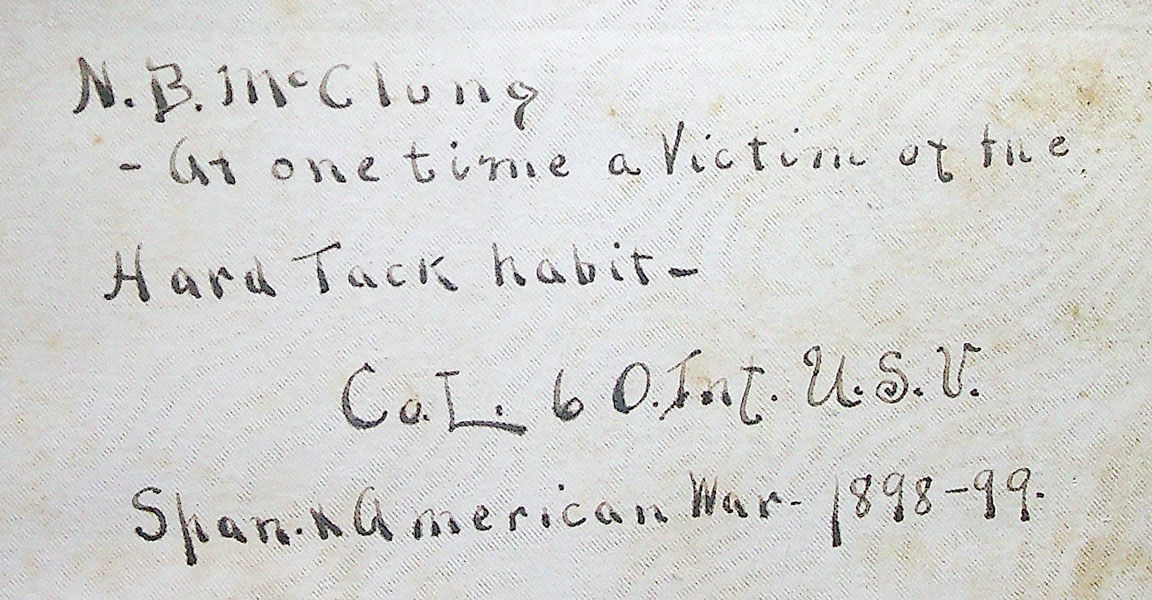 N. B. McClung
- At one time a Victim of the
Hard Tack habit -
Co. L. 6 O. Inf. U. S. V.
Span. & American War - 1898-99.